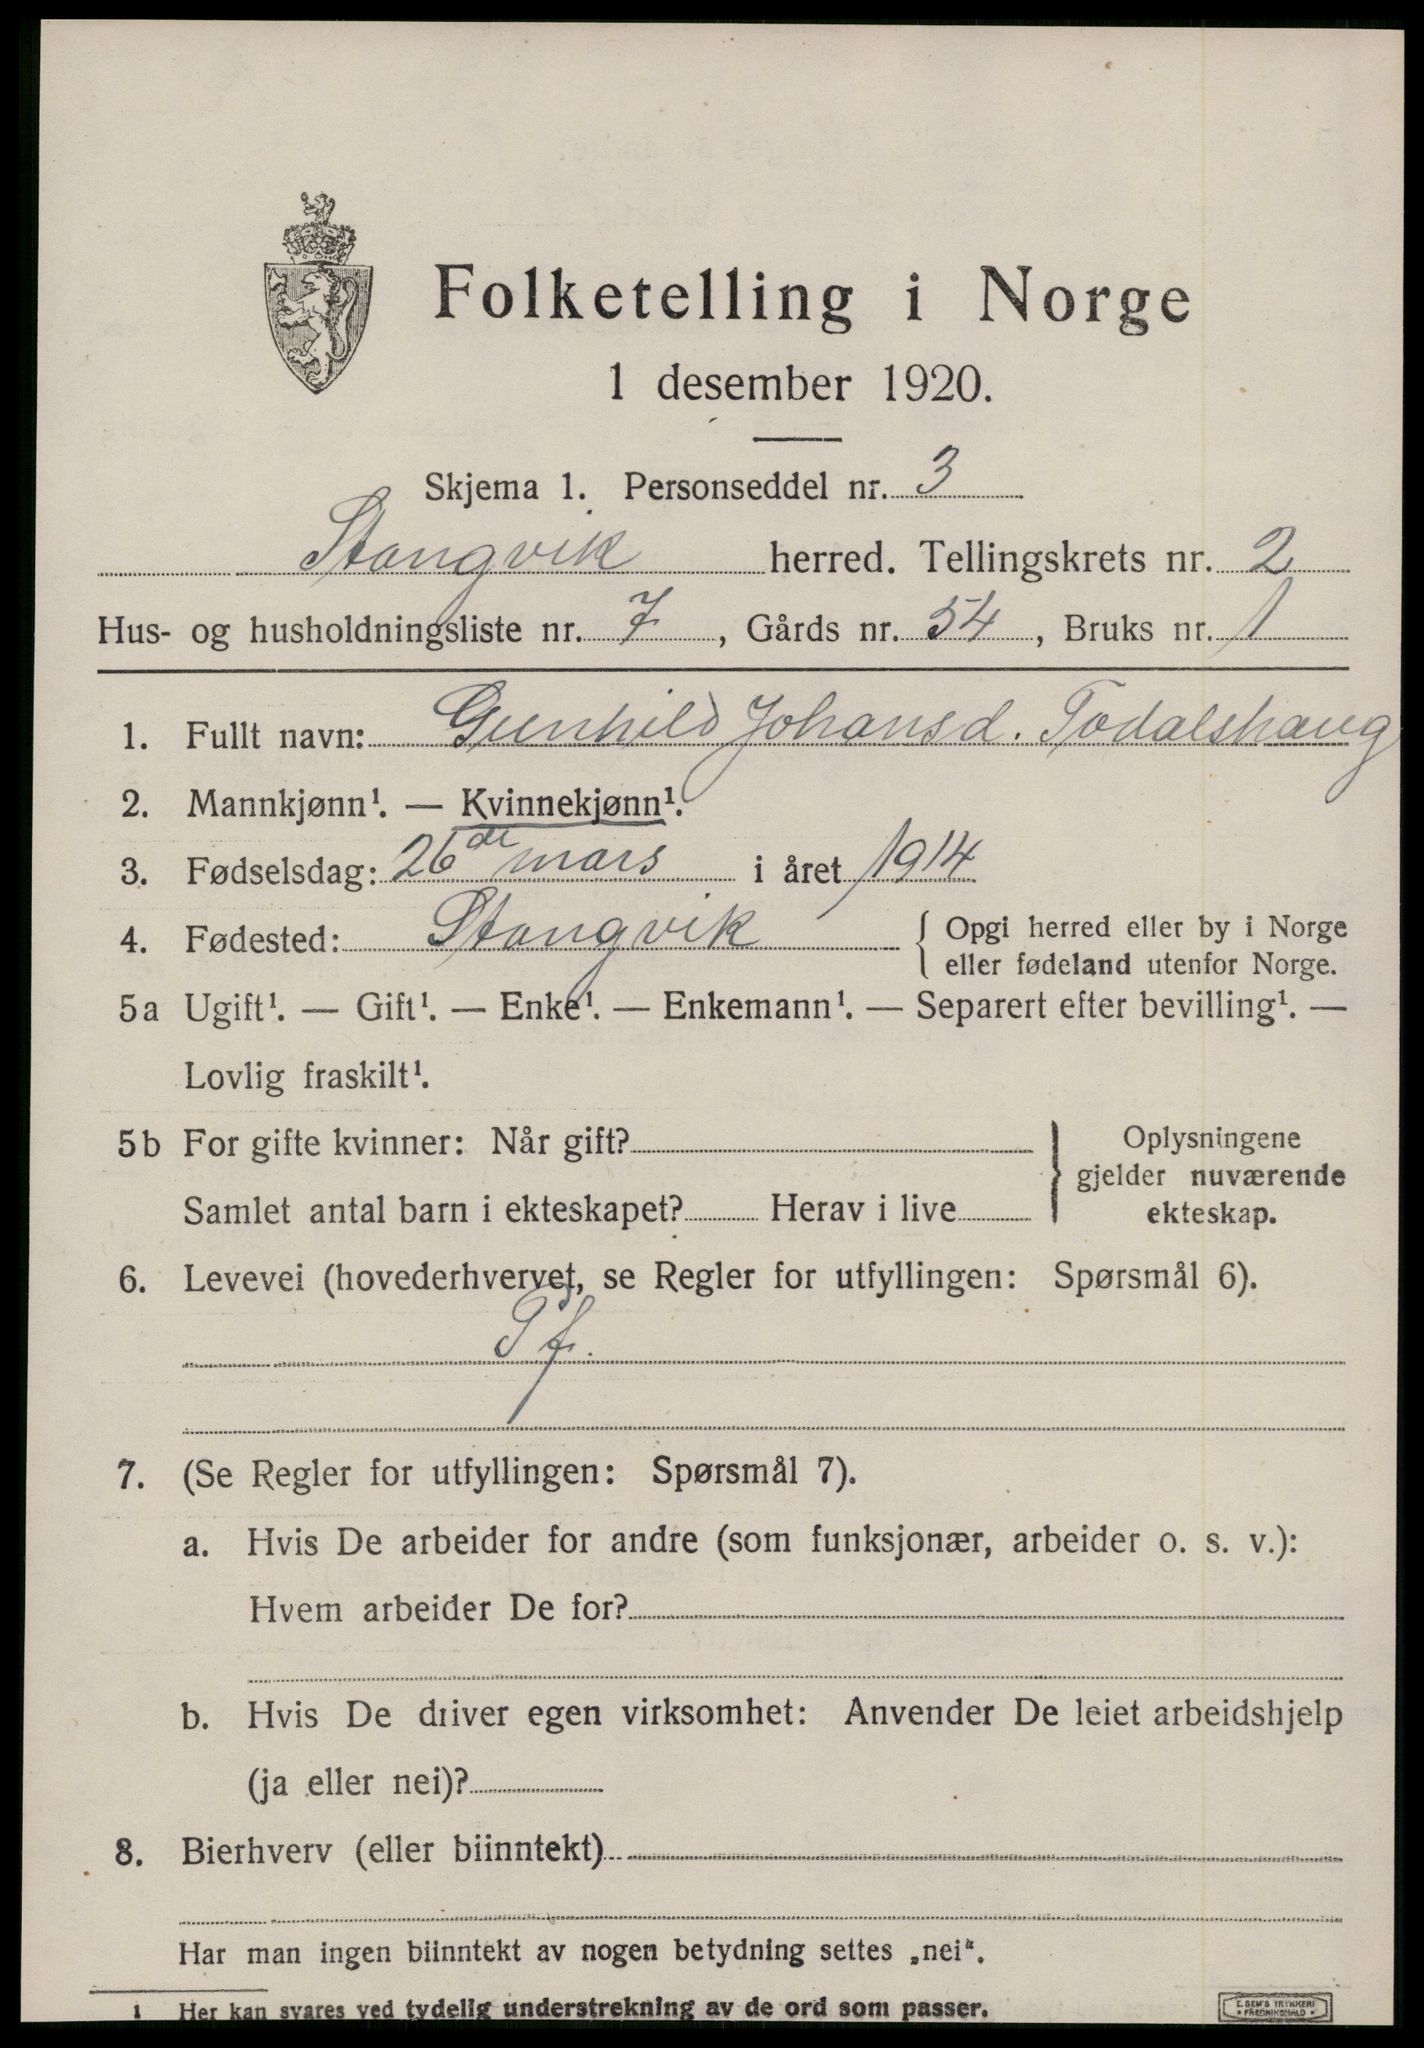 Folketelling i Norge
1 desember 1920.
Skjema 1. Personseddel nr. 3
Stangvik herred. Tellingskrets nr. 2
Hus- og husholdningsliste nr. 7, Gårds nr. 54, Bruks nr. 1
1. Fullt navn: Gunhild Johansd. Todalshaug
2. Mannkjønn¹. — Kvinnekjønn¹.
3. Fødselsdag: 26de mars i året 1914
4. Fødested: Stangvik { Opgi herred eller by i Norge
eller fødeland utenfor Norge.
5a Ugift¹. — Gift¹. — Enke¹. — Enkemann¹. — Separert efter bevilling¹. —
Lovlig fraskilt¹.
5b For gifte kvinner: Når gift? } Oplysningene
gjelder nuværende
Samlet antal barn i ekteskapet? Herav i live ekteskap.
6. Levevei (hovederhvervet, se Regler for utfyllingen: Spørsmål 6).
7. (Se Regler for utfyllingen: Spørsmål 7).
a. Hvis De arbeider for andre (som funksjonær, arbeider o. s. v.):
Hvem arbeider De for?
b. Hvis De driver egen virksomhet: Anvender De leiet arbeidshjelp
(ja eller nei)?
8. Bierhverv (eller biinntekt)
Har man ingen biinntekt av nogen betydning settes „nei“.
1 Her kan svares ved tydelig understrekning av de ord som passer.
E. SEM'S TRYKKERI
FREDRIKSHALD